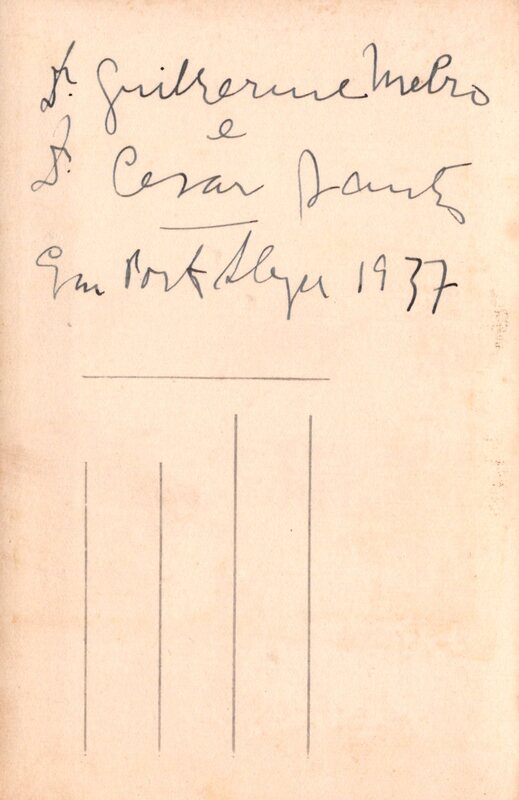 Dr. Guilherme Melro
e
Dr. Cesar Santos
Em Port 1937